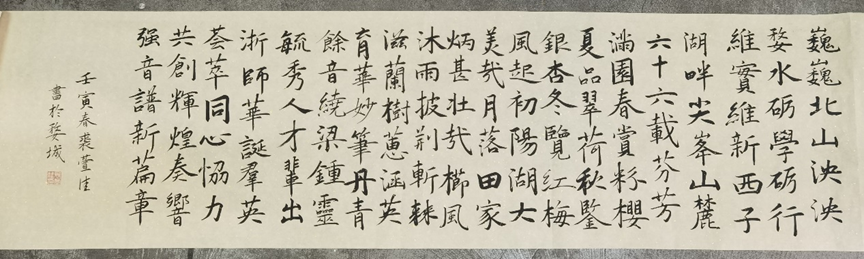 巍巍北山泱泱
婺水砺學砺行
維實維新西子
湖畔尖峯山麓
六十六載芬芳
滿園春賞粉櫻
夏品翠荷秋鑒
銀杏冬覽红梅
風起初陽湖大
美哉月落田家
炳甚壮哉櫛風
沐雨披荆斬棘
滋蘭樹蕙涵英
育華妙筆丹青
餘音繞梁鍾靈
毓秀人才輩出
浙師華誕羣英
荟萃同心協力
共創輝煌奏響
强音譜新篇章
壬寅春裘萱佳
書於婺城